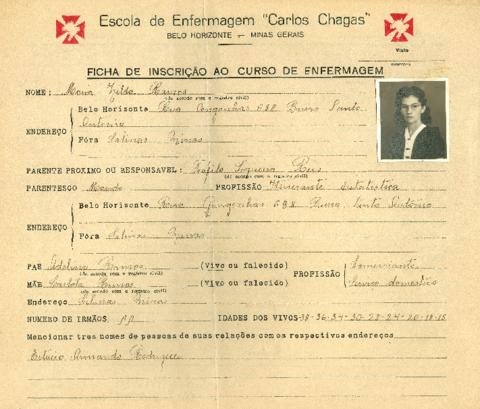 Escola de Enfermagem "Carlos Chagas"
BELO HORIZONTE — MINAS GERAIS
Visto
FICHA DE INSCRIÇÃO AO CURSO DE ENFERMAGEM
NOME: Maria Hilda Ramos
(de acordo com o registro civil)
Belo Horizonte Rua Congonhas 682 Bairro Santo
Antonio
ENDEREÇO
Fóra Salinas Minas
PARENTE PROXIMO OU RESPONSAVEL: Teófilo Reis
(de acordo com o registro civil)
PARENTESCO Marido PROFISSÃO Itinerante Estatística
Belo Horizonte Congonhas 682 Santo Antônio
ENDEREÇO
Fóra Salinas Minas
PAE Ramos (Vivo ou falecido) Comerciante
(de acordo com o registro civil)
PROFISSÃO
MÃE Ramos (Vivo ou falecido) Serviço domestico
(de acordo com o registro civil)
Endereço Salinas Minas
NUMERO DE IRMÃOS IDADES DOS VIVOS 38-36-34-30-28-24-20-18-15
Mencionar tres nomes de pessoas de suas relações com os respectivos endereços
Armando Rodrigues